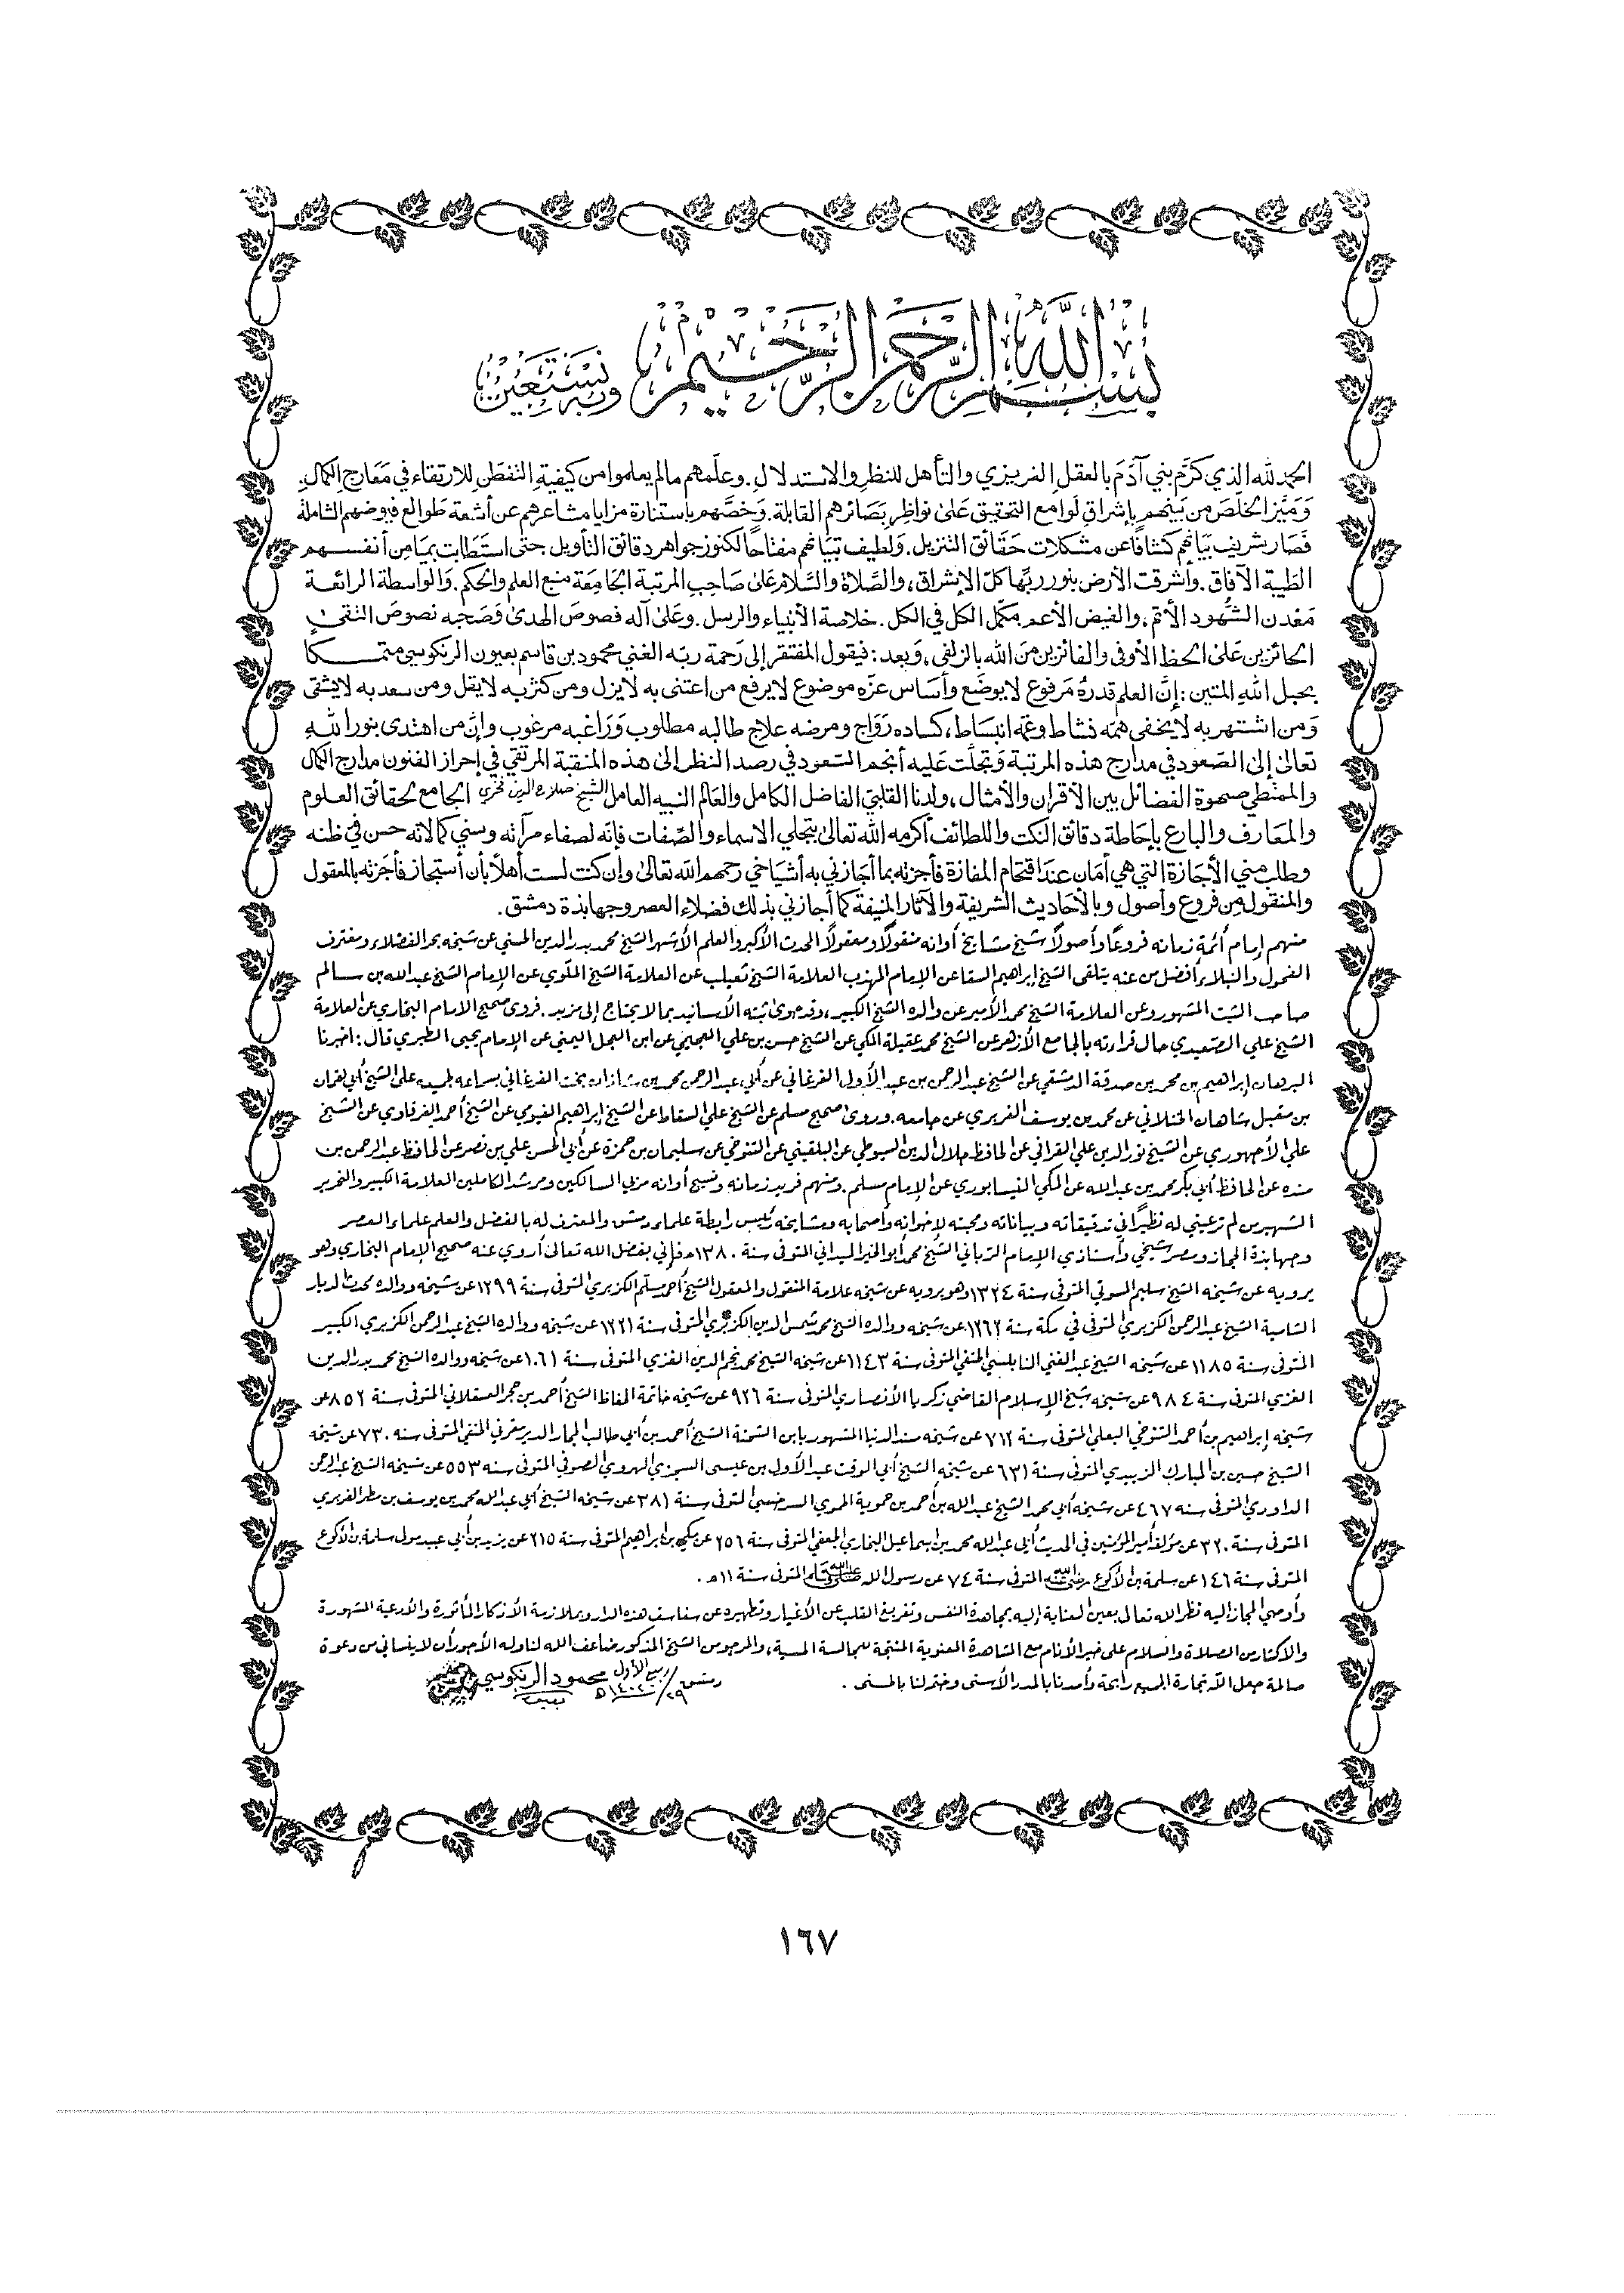 بسم الله الرحمن الرحيم وبه نستعين
الحمد لله الذي كرَّم بني آدَمَ بالعقلِ الغريزي والتأهل للنظر والاستدلالِ. وعلّمهم مالم يعلموا من كيفيةِ التفطّن للارتقاء في مَعَارج الكمالِ.
وَمَيَّز الخلّصَ من بَينهم بإشراقِ لَوامع التحقيق عَلىٰ نواظِر بَصَائرهم القابلة. وَخصَّهم باستنارة مزايا مشاعرهم عن أشعة طَوالع فيوضهم الشاملة
فَصَار بشريف بَيَانهم كشافًا عن مشكلات حَقَائق التنزيل. وَلطيف تبيَانهم مفتاحًا لكنوز جواهر دقائق التأويل. حتىٰ استَطَابت بميَامِن أنفسهم
الطيبة الآفاق. وأشرقت الأرض بنور ربّها كلّ الإشراق، والصَّلاة والسَّلام عَلىٰ صَاحِب المرتبة الجَامِعَة منبع العلم والحكم. وَالواسطة الرائعة
مَعْدن الشّهود الأتم، والفيض الأعم مكمّل الكل في الكل. خلاصة الأنبياء والرسل. وعَلىٰ آله فصوصِ الهدىٰ وَصَحبه نصوصَ التقىٰ
الحائزين عَلىٰ الحظ الأوفى والفائزين مَنَ الله بالزلفى، وَبعد: فيقول المفتقر إلى رَحمة ربّه الغني محمود بن قاسم بعيون الرنكوسي متمسكًا
بحبل اللهِ المتين: إنَّ العلم قدرهُ مَرفوع لا يوضَع وأسَاس عزّه موضوع لا يرفع من اعتنى به لا يزل ومن كثر به لا يقل ومن سعد به لا يشقى
وَمن اشتهر به لا يخفى همّه نشاط وغمّه انبسَاط، كساده رَوَاج ومرضه علاج طالبه مطلوب وَرَاغبه مرغوب وإنَّ من اهتدى بنور اللهِ
تعَالىٰ إلىٰ الصّعود في مدارج هذه المرتبة وَتجلّت عَليه أنجم السّعود في رصد النظر إلىٰ هذه المنقبة المرتقي في إحراز الفنون مدارج الكمال
والممتطي صهوة الفضائل بين الأقران والأمثال، ولدنا القلبيّ الفاضل الكامل والعَالِم النبيه العامل الشيخ صلاح الدين فخري الجامع لحقائق العلوم
والمعَارف والبارع بإحَاطة دقائق النكت واللطائف أكرمه الله تعالىٰ بتجلي الاسماء والصّفات فإنه لصفاء مرآته وسني كمالاته حسن فيَّ ظنه
وطلب مني الأجَازة التي هي أمَان عندَ اقتحام المفازة فأجزته بما أجَازني به أشيَاخي رحمهم الله تعالىٰ وإن كنت لست أهلًا بأن أستجاز فأجَزته بالمعقول
والمنقول مِن فروع وأصول وبالأحَاديث الشريفة والآثار المنيفة كما أجازني بذلك فضلاء العصر وجهابذة دمشق.
منهم إمام أئمة زمانه فروعًا وأصولًا شيخ مشايخ أوانه منقولًا ومعقولًا المحدث الأكبر والعلم الأشهر الشيخ محمد بدر الدين الحسني عن شيخه بحر الفضلاء ومغترف
الفحول والنبلاء أفضل من عنه يتلقى الشيخ إبراهيم السقا عن الإمام المهذب العلامة الشيخ ثعيلب عن العلامة الشيخ الملّوي عن الإمام الشيخ عبد الله بن سالم
صاحب الثبت المشهور وعن العلامة الشيخ محمد الأمير عن والده الشيخ الكبير، وقد حوى ثبته الأسانيد بما لا يحتاج إلى مزيد. فروى صحيح الامام البخاري عن العلامة
الشيخ علي الصّعيدي حال قراءته بالجامع الأزهر عن الشيخ محمد عقيلة المكي عن الشيخ حسن بن علي العجيمي عن ابن العجل اليمني عن الإمام يحيى الطبري قال: اخبرنا
البرهان إبراهيم بن محمد بن صدقة الدمشقي عن الشيخ عبد الرحمن بن عبد الأول الفرغاني عن أبي عبد الرحمن محمد بن شاذان بخت الفرغاني بسماعه لجميعه على الشيخ أبي لقمان
بن مقبل شاهان الختلاني عن محمد بن يوسف الفربري عن جامعه. وروى صحيح مسلم عن الشيخ علي السقاط عن الشيخ إبراهيم الفيومي عن الشيخ أحمد الفرقاوي عن الشيخ
علي الأجهوري عن الشيخ نور الدين علي القرافي عن الحافظ جلال الدين السيوطي عن البلقيني عن التنوخي عن سليمان بن حمزة عن أبي الحسن علي بن نصر عن الحافظ عبد الرحمن بن
منده عن الحافظ أبي بكر محمد بن عبد الله عن المكي النيسابوري عن الإمام مسلم. ومنهم فريد زمانه ونسيج أوانه مربي السالكين ومرشد الكاملين العلامة الكبير والنحرير
الشهير من لم تر عيني له نظيرًا في تدقيقاته وبياناته ومحبته لإخوانه وأصحابه ومشايخه رئيس رابطة علماء دمشق والمعترف له بالفضل والعلم علماء العصر
وجهابذة الحجاز ومصر شيخي وأستاذي الإمام الرّباني الشيخ محمد أبو الخير الميداني المتوفى سنة ١٣٨٠هـ فإني بفضل الله تعالى أروي عنه صحيح الإمام البخاري وهو
يرويه عن شيخه الشيخ سليم المسوتي المتوفى سنة ١٣٢٤ وهو يرويه عن شيخه علامة المنقول والمعقول الشيخ أحمد مسلّم الكزبري المتوفى سنة ١٢٩٩ عن شيخه ووالده محدث الديار
الشامية الشيخ عبد الرحمن الكزبري المتوفى في مكة سنة ١٢٦٢ عن شيخه ووالده الشيخ محمد شمس الدين الكزبري المتوفى سنة ١٢٢١ عن شيخه ووالده الشيخ عبد الرحمن الكزبري الكبير
المتوفى سنة ١١٨٥ عن شيخه الشيخ عبد الغني النابلسي الحنفي المتوفى سنة ١١٤٣ عن شيخه الشيخ محمد نجم الدين الغزي المتوفى سنة ١٠٦١ عن شيخه ووالده الشيخ محمد بدر الدين
الغزي المتوفى سنة ٩٨٤ عن شيخه شيخ الإسلام القاضي زكريا الأنصاري المتوفى سنة ٩٢٦ عن شيخه خاتمة الحفاظ الشيخ أحمد بن حجر العسقلاني المتوفى سنة ٨٥٢ عن
شيخه إبراهيم بن أحمد التنوخي البعلي المتوفى سنة ٧١٢ عن شيخه مسند الدنيا المشهور بابن الشحنة الشيخ أحمد بن أبي طالب الحجار الدير مقرني الحنفي المتوفى سنه ٧٣٠ عن شيخه
الشيخ حسين بن المبارك الزبيدي المتوفى سنة ٦٣١ عن شيخه الشيخ أبي الوقت عبد الأول بن عيسى السجزي الهروي الصوفي المتوفى سنه ٥٥٣ عن شيخه الشيخ عبد الرحمن
الداودي المتوفى سنه ٤٦٧ عن شيخه أبي محمد الشيخ عبد الله بن أحمد بن حموية الحموي السرخسي المتوفى سنة ٣٨١ عن شيخه الشيخ أبي عبد الله محمد بن يوسف بن مطر الفربري
المتوفى سنة ٣٢٠ عن مؤلفه أمير المؤمنين في الحديث أبي عبد الله محمد بن إسماعيل البخاري الجعفي المتوفى سنة ٢٥٦ عن مكي بن إبراهيم المتوفى سنة ٢١٥ عن يزيد بن أبي عبيد مولى سلمة بن الأكوع
المتوفى سنة ١٤٦ عن سلمة بن الأكوع رضي الله عنه المتوفى سنة ٧٤ عن رسول الله صلى الله عليه وسلم المتوفى سنة ١١هـ.
وأوصي المجاز إليه نظر الله تعالى بعين العناية إليه بمجاهدة النفس وتفريغ القلب عن الأغيار وتطهيره عن سفاسف هذه الدار وبملازمة الأذكار المأثورة والأدعية المشهورة
والاكثار من الصلاة والسلام على خير الأنام مع المشاهدة المعنوية المنتجة للمجالسة الحسية، والمرجو من الشيخ المذكور ضاعف الله لنا وله الأجور أن لا ينساني من دعوة
صالحة جعل الله تجارة الجميع رابحة وأمدنا بالمدد الأسنى وختم لنا بالحسنى.
دمشق ٢٩/ ربيع الأول ١٤٠٢هـ محمود الرنكوسي
١٦٧